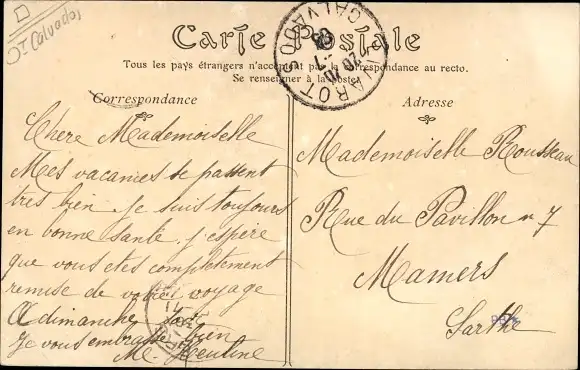 Calvados
Carte Postale
Tous les pays étrangers n'acceptent pas la correspondance au recto.
Se renseigner à la poste
Correspondance
Chere Mademoiselle
Mes vacances se passent
tres bien. Je suis toujours
en bonne santé. J'espere
que vous etes completement
remise de votre voyage
A dimanche
Je vous embrasse bien
M.
Adresse
Mademoiselle Rousseau
Rue du Pavillon n 7
Mamers
Sarthe
CALVADOS